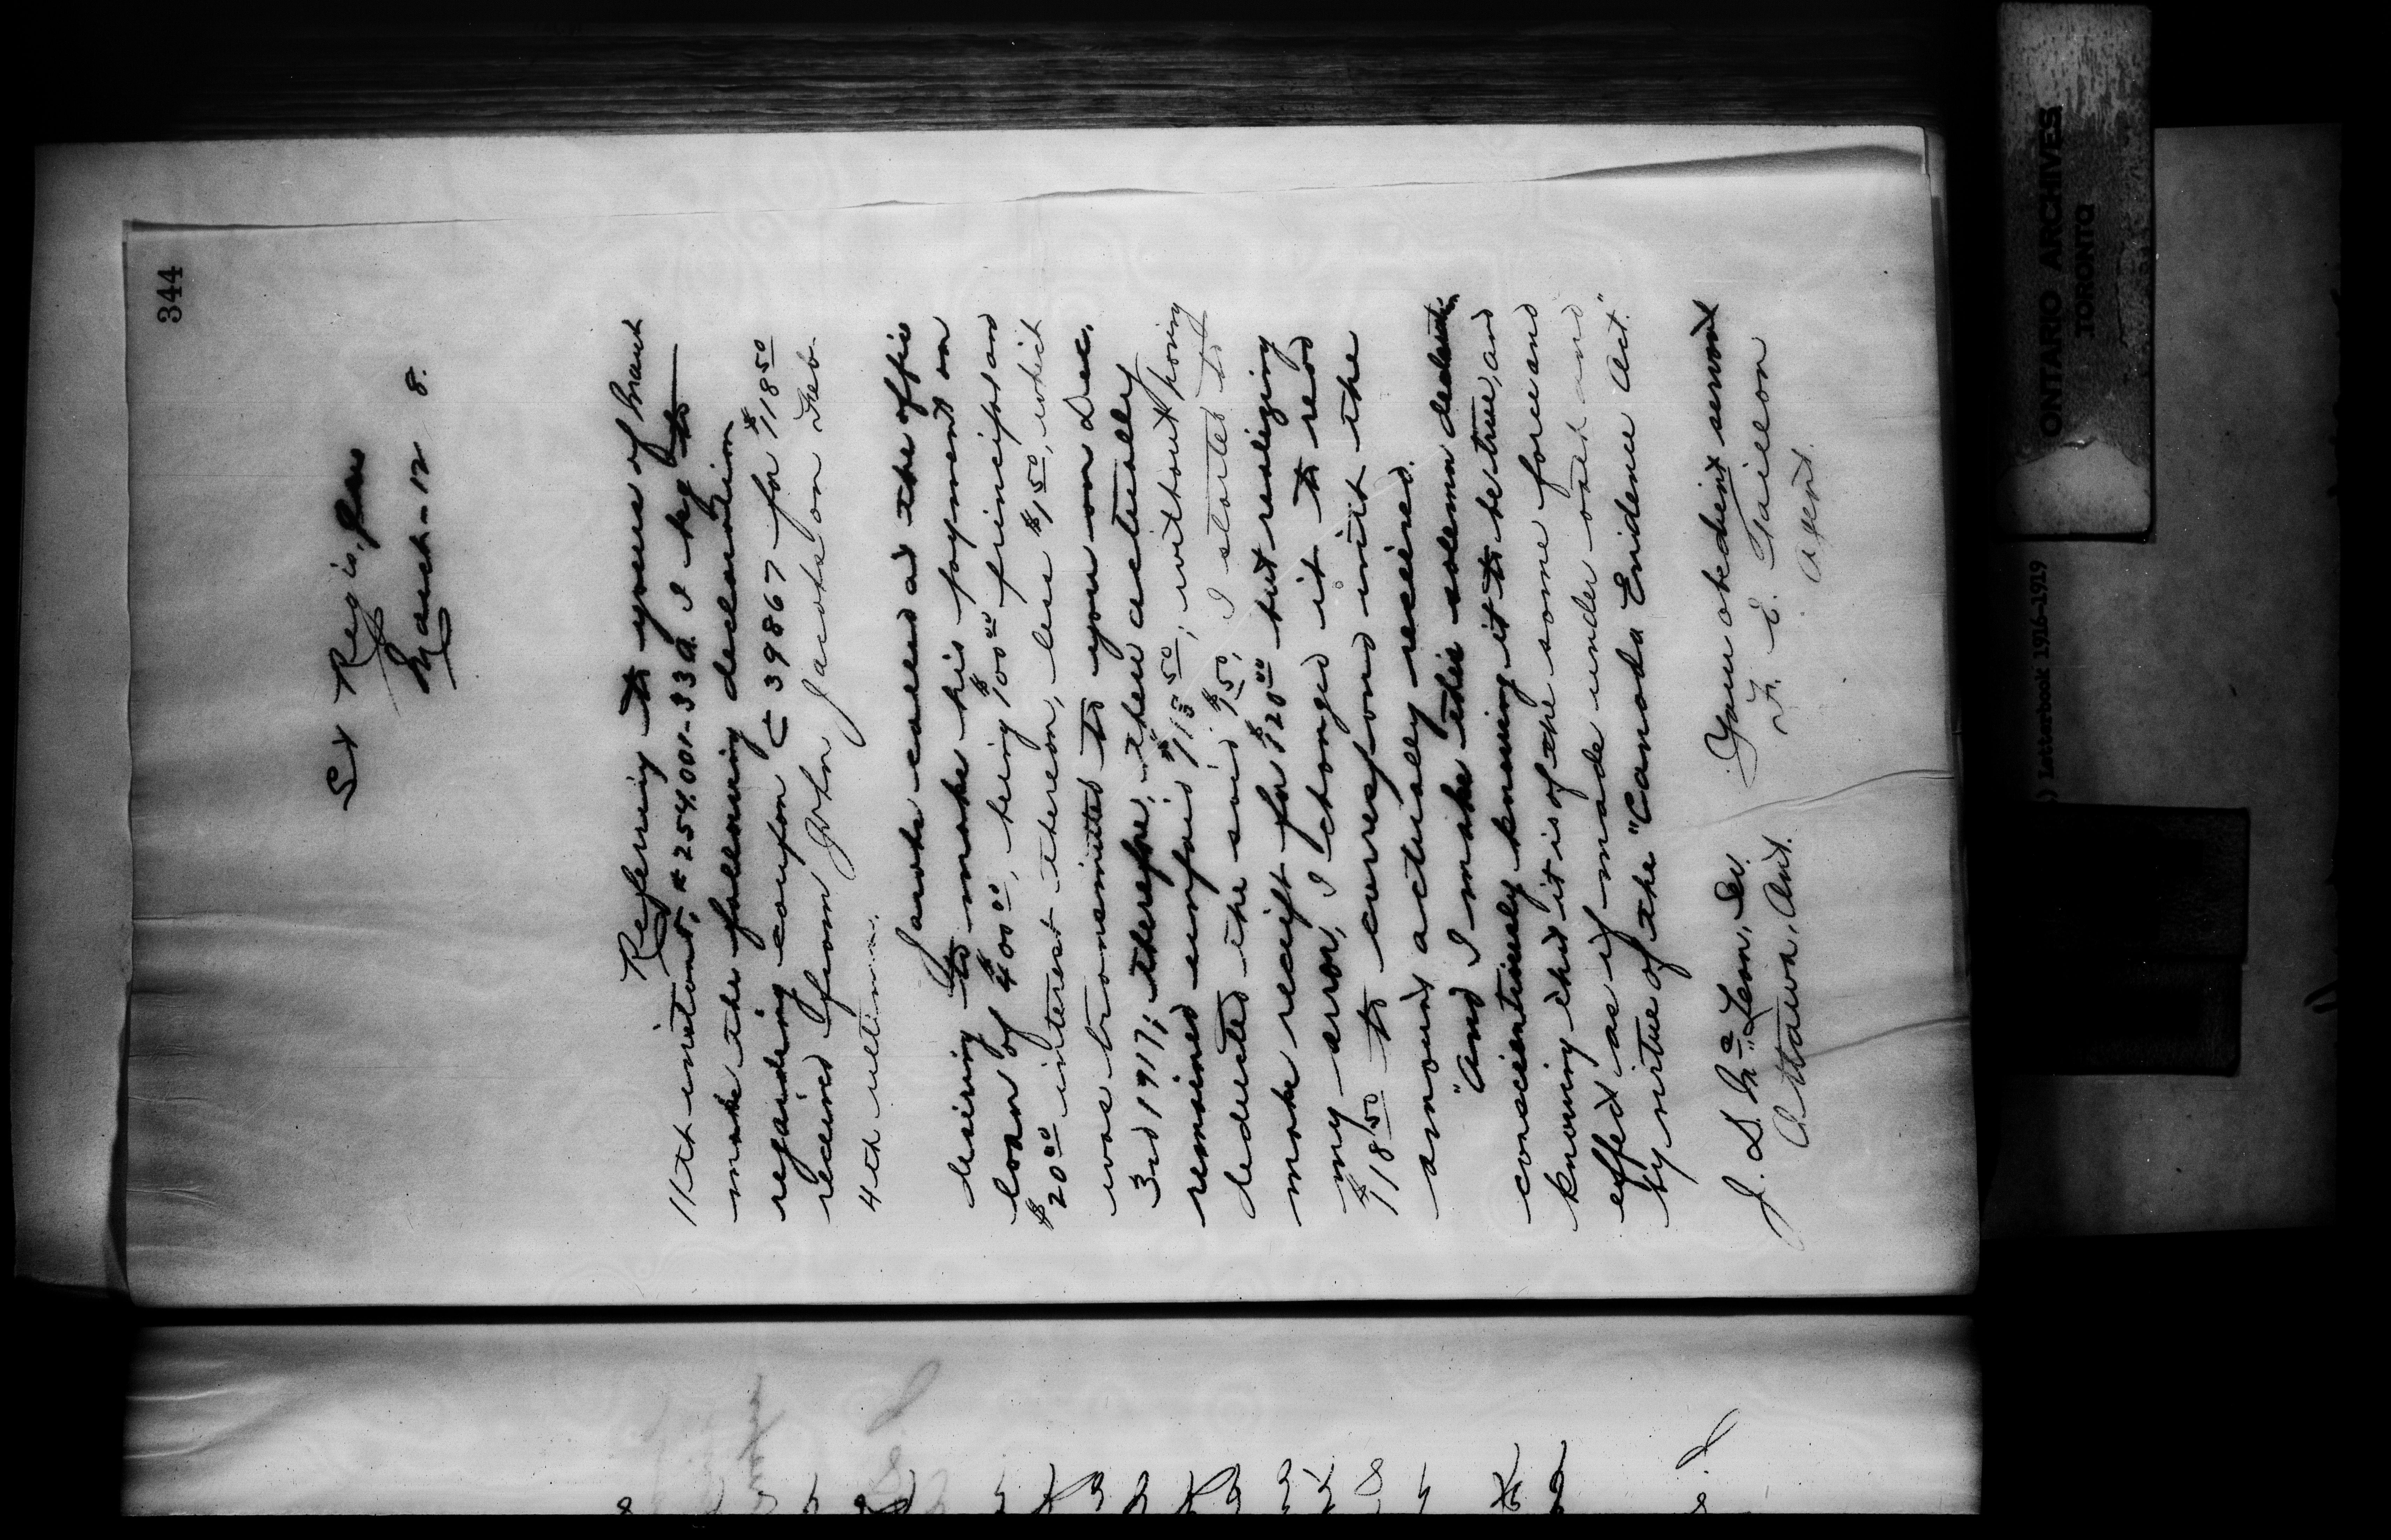 344
St Regis, Que
March - 12 8.
Referring to yours of March
11th instant, # 254.001-33 a. I beg to
make the following declaration
regarding coupon C 39867 for $118 50
received from John Jacobs on Feb.
4th ultimo.
Jacobs called at the office
desiring to make his payment on
loan of $400 00, being $100 00 principal and
$20 00 interest thereon, less $1 50, which
was transmitted to you on Dec.
3rd 1917; therefore, then actually
remained unpaid $118 50; without having
deducted the said $1 50, I started to
make receipt for $120 00 but realizing
my error, I changed it to read
$118 50 to correspond with the
amount actually received.
"And I make this solemn declaration
conscientiously knowing it to be true, and
knowing that it is of the same force and
effect as if made under oath and
by virtue of the "Canada Evidence Act."
Your obedient servant
J. D. McLean, Esq.
F. E. Taillon
Ottawa, Ont.
Agent.
ONTARIO ARCHIVES
TORONTO
) Letterbook 1916-1919